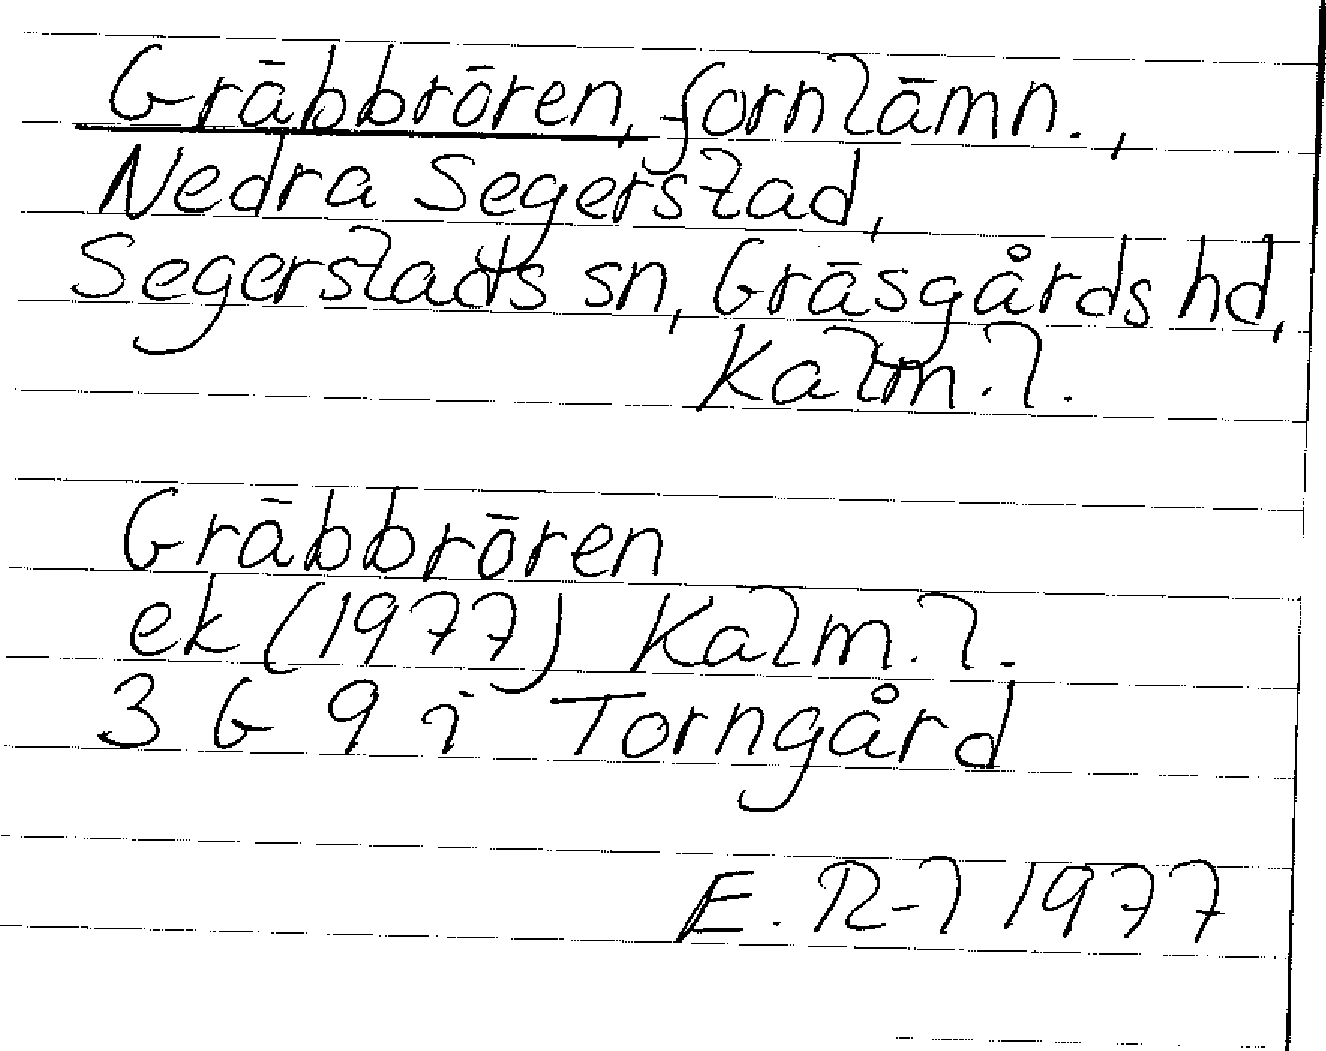 Gräbbrören, fornlämn.,
Nedra Segerstad,
Segerstads sn, Gräsgårds hd,
Kalm. l.
Gräbbrören
ek (1977) Kalm. l.
3 G 9 i Torngård
E. R-l 1977